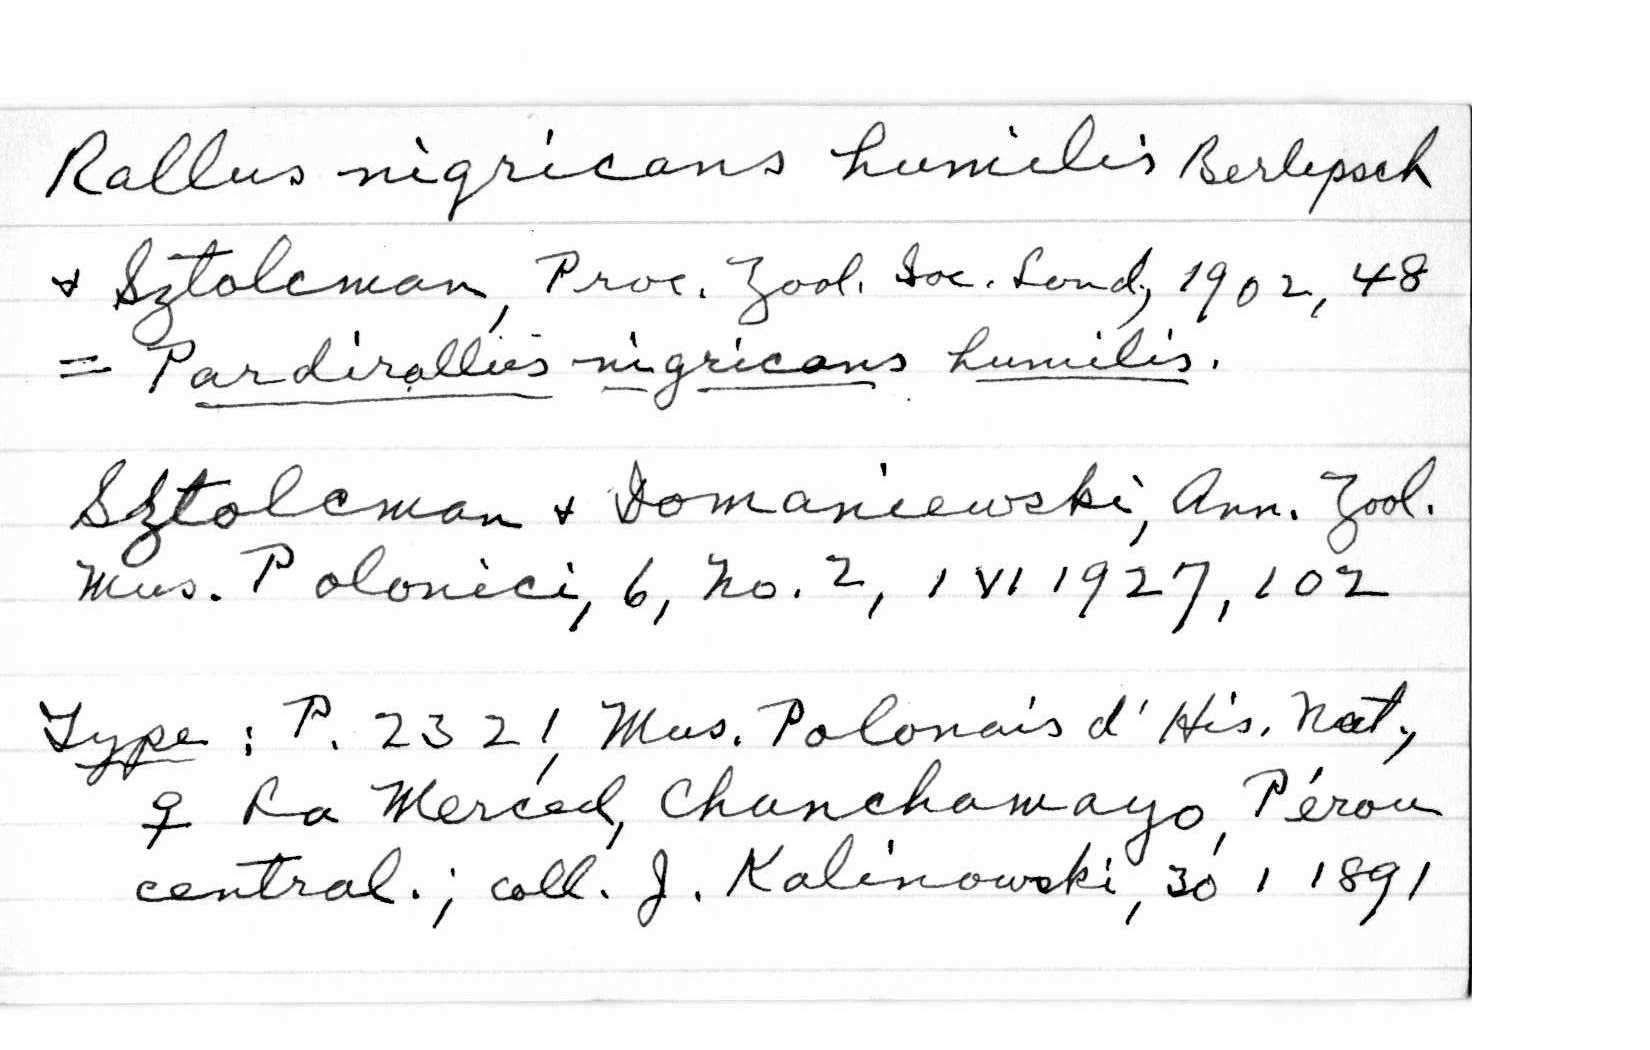 Rallus nigricans humilis Berlepsch
& Sztolcman, Proc. Zool. Soc. Lond., 1902, 48
= Pardirallus nigricans humilis.
Sztolcman & Domaniewski, Ann. Zool.
Mus. Polonici, 6, No. 2, 1 VI 1927, 102
Type : P. 2321, Mus. Polonais d' His. Nat.,
♀ La Merced, Chanchamayo, Pérou
central. ; coll. J. Kalinowski, 30 1 1891